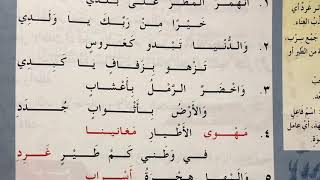 انْهَمَرَ الْمَطَرُ عَلَى بَلَدِي
خَيْرًا مِنْ رَبِّكَ يَا وَلَدِي
٢. وَالدُّنْيَا تَبْدُو كَعَرُوسٍ
تَزْهُو بِزَفَافٍ يَا كَبِدِي
٣. وَاخْضَرَّ الرَّمْلُ بِأَعْشَابٍ
وَالْأَرْضُ بِأَثْوَابٍ جُدَدِ
٤. مَهْوَى الْأَطْيَارِ مَغَانِينَا
فِي وَطَنِي كَمْ طَيْرٍ غَرِدِ
هِجْرَةُ أَسْرَابٍ
جَمْعُ سِرْبٍ،
اسْمُ فَاعِلٍ
أي عامل